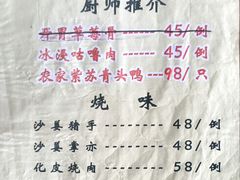 厨师推介
开胃草莓骨------45/例
冰漠咕噜肉------45/例
农家紫苏青头鸭---98/只
烧味
沙姜猪手------48/例
沙姜掌亦------48/例
化皮烧肉------58/例